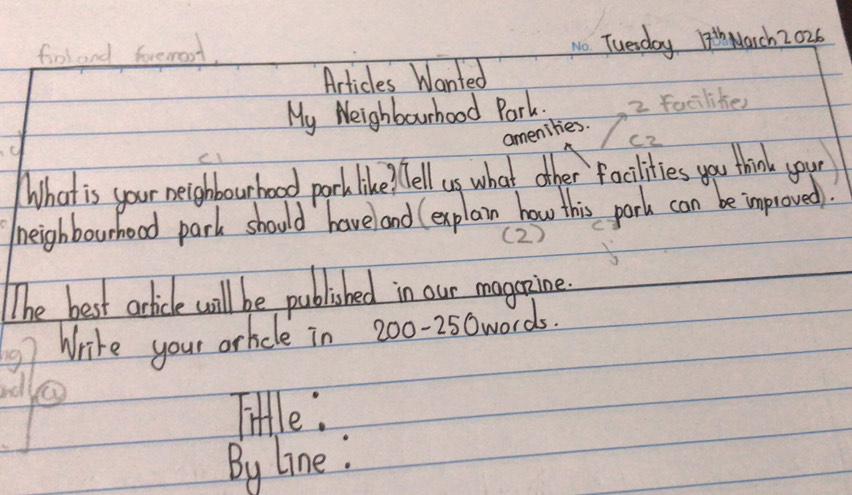 first and foremost,
No. Tuesday 17th March 2026
Articles Wanted
My Neighbourhood Park.
2 facilities
amenities.
C1
C2
What is your neighbourhood park like? (Tell us what other facilities you think your
neighbourhood park should have) and (explain how this park can be improved).
(2)
The best article will be published in our magazine.
Write your article in 200-250 words.
Tittle:
By Line: